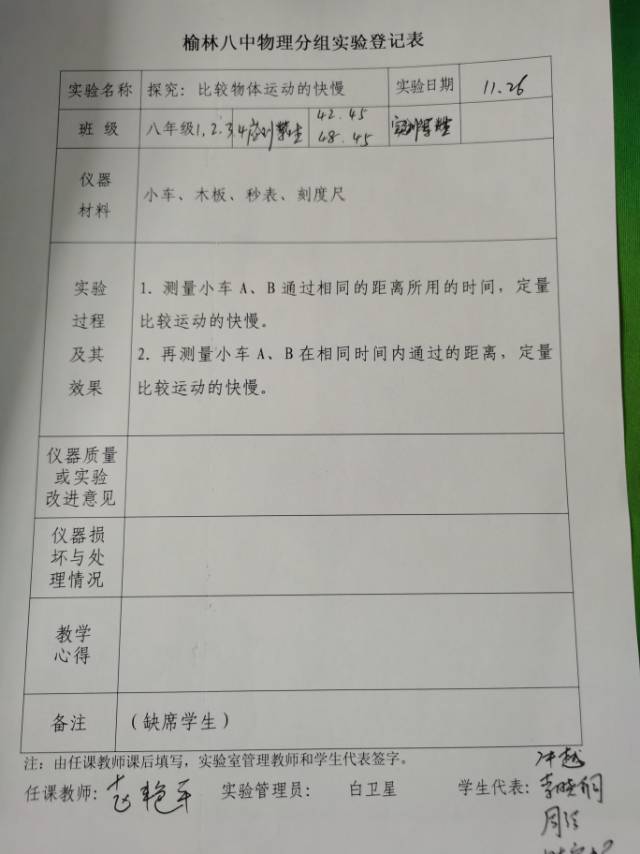 榆林八中物理分组实验登记表
实验名称 探究：比较物体运动的快慢 实验日期 11.26
班 级 八年级1.2.3.4 应到学生 42.45 实到学生
48.45
仪器
材料
小车、木板、秒表、刻度尺
实验
过程
及其
效果
1. 测量小车 A、B 通过相同的距离所用的时间，定量
比较运动的快慢。
2. 再测量小车 A、B 在相同时间内通过的距离，定量
比较运动的快慢。
仪器质量
或实验
改进意见
仪器损
坏与处
理情况
教学
心得
备注 （缺席学生）
注：由任课教师课后填写，实验室管理教师和学生代表签字。
任课教师： 艳军 实验管理员： 白卫星 学生代表：